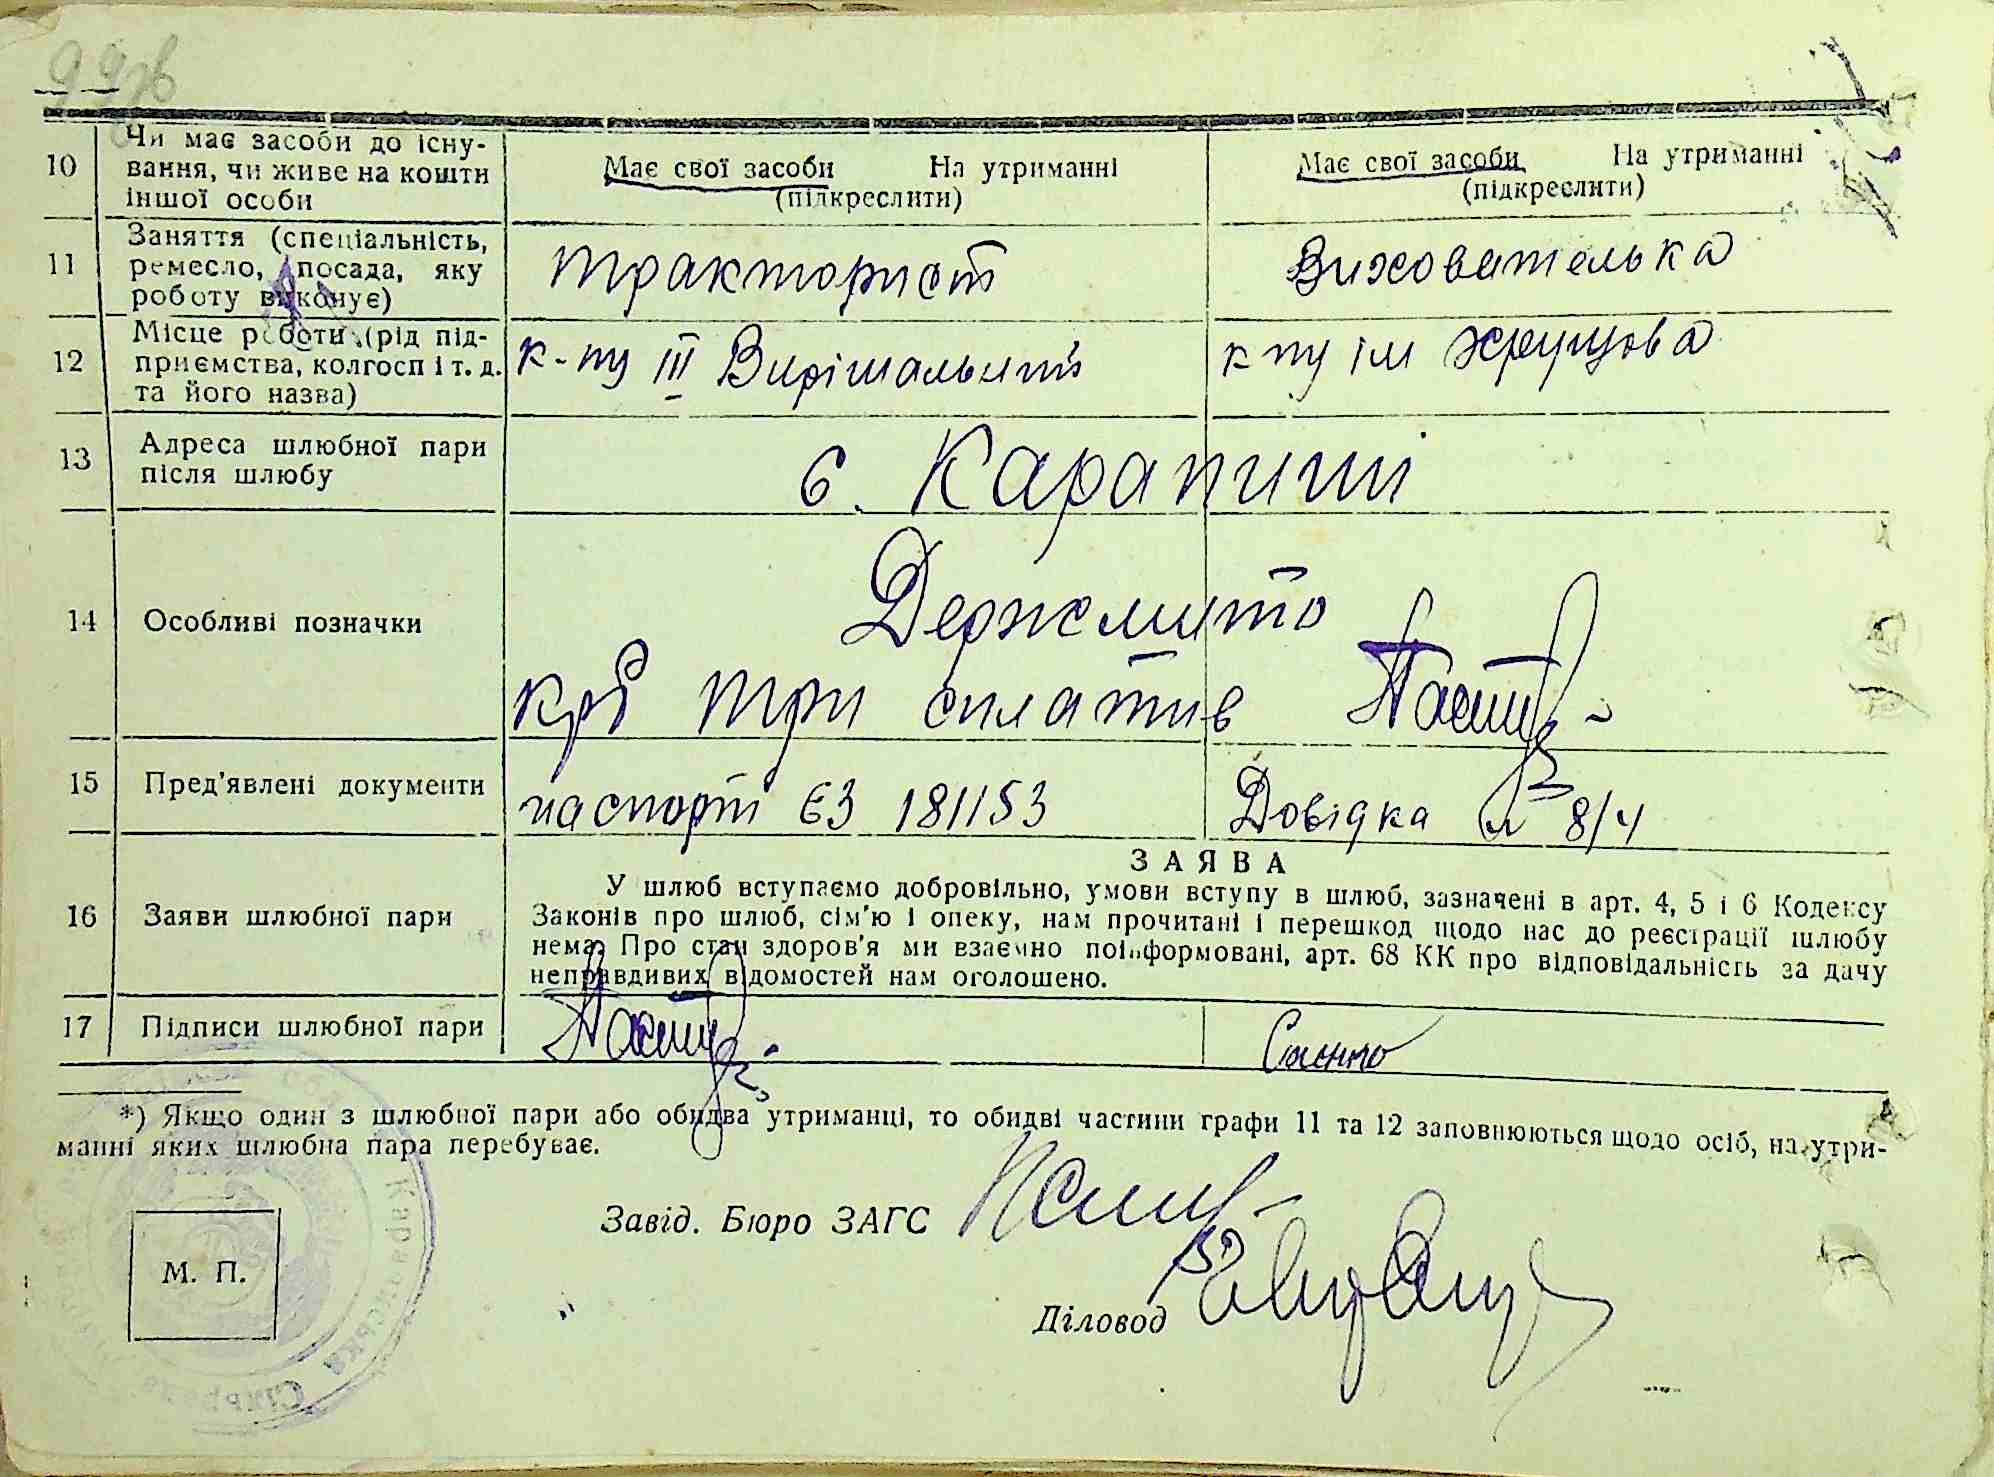 99зв
10
Чи має засоби до існу-
вання, чи живе на кошти
іншої особи
Має свої засоби На утриманні
(підкреслити)
Має свої засоби На утриманні
(підкреслити)
11
Заняття (спеціальність,
ремесло, посада, яку
роботу виконує)
тракторист
Вихователька
12
Місце роботи (рід під-
приємства, колгосп і т. д.
та його назва)
к-пу ІІІ Вирішальний
к пу ім Хрущова
13
Адреса шлюбної пари
після шлюбу
с. Карапиші
14
Особливі позначки
Держмито
крб три сплатив
15
Пред'явлені документи
паспорт ЄЗ 181153
Довідка № 8/4
16
Заяви шлюбної пари
ЗАЯВА
У шлюб вступаємо добровільно, умови вступу в шлюб, зазначені в арт. 4, 5 і 6 Кодексу
Законів про шлюб, сім'ю і опеку, нам прочитані і перешкод щодо нас до реєстрації шлюбу
нема. Про стан здоров'я ми взаємно поінформовані, арт. 68 КК про відповідальність за дачу
неправдивих відомостей нам оголошено.
17
Підписи шлюбної пари
*) Якщо один з шлюбної пари або обидва утриманці, то обидві частини графи 11 та 12 заповнюються щодо осіб, на утри-
манні яких шлюбна пара перебуває.
Завід. Бюро ЗАГС
М. П.
Діловод